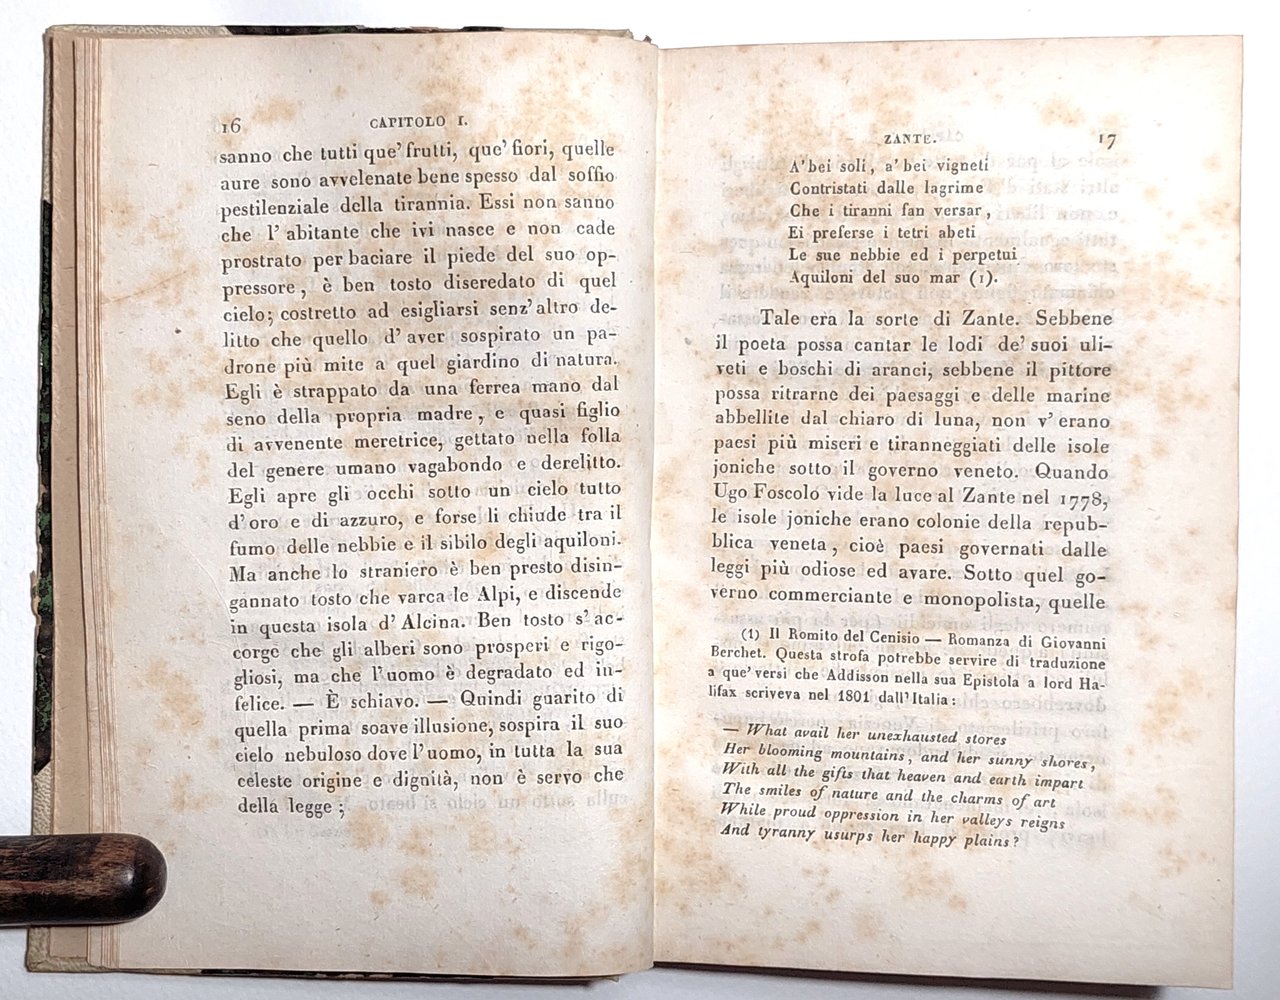 16 CAPITOLO I.
sanno che tutti que' frutti, que' fiori, quelle
aure sono avvelenate bene spesso dal soffio
pestilenziale della tirannia. Essi non sanno
che l'abitante che ivi nasce e non cade
prostrato per baciare il piede del suo op-
pressore, è ben tosto diseredato di quel
cielo; costretto ad esigliarsi senz'altro de-
litto che quello d'aver sospirato un pa-
drone più mite a quel giardino di natura.
Egli è strappato da una ferrea mano dal
seno della propria madre, e quasi figlio
di avvenente meretrice, gettato nella folla
del genere umano vagabondo e derelitto.
Egli apre gli occhi sotto un cielo tutto
d'oro e di azzuro, e forse li chiude tra il
fumo delle nebbie e il sibilo degli aquiloni.
Ma anche lo straniero è ben presto disin-
gannato tosto che varca le Alpi, e discende
in questa isola d'Alcina. Ben tosto s'ac-
corge che gli alberi sono prosperi e rigo-
gliosi, ma che l'uomo è degradato ed in-
felice. — È schiavo. — Quindi guarito di
quella prima soave illusione, sospira il suo
cielo nebuloso dove l'uomo, in tutta la sua
celeste origine e dignità, non è servo che
della legge;
ZANTE. 17
A' bei soli, a' bei vigneti
Contristati dalle lagrime
Che i tiranni fan versar,
Ei preferse i tetri abeti
Le sue nebbie ed i perpetui
Aquiloni del suo mar (1).
Tale era la sorte di Zante. Sebbene
il poeta possa cantar le lodi de' suoi uli-
veti e boschi di aranci, sebbene il pittore
possa ritrarne dei paesaggi e delle marine
abbellite dal chiaro di luna, non v'erano
paesi più miseri e tiranneggiati delle isole
joniche sotto il governo veneto. Quando
Ugo Foscolo vide la luce al Zante nel 1778,
le isole joniche erano colonie della repub-
blica veneta, cioè paesi governati dalle
leggi più odiose ed avare. Sotto quel go-
verno commerciante e monopolista, quelle
(1) Il Romito del Cenisio — Romanza di Giovanni
Berchet. Questa strofa potrebbe servire di traduzione
a que' versi che Addisson nella sua Epistola a lord Ha-
lifax scriveva nel 1801 dall'Italia:
— What avail her unexhausted stores
Her blooming mountains, and her sunny shores,
With all the gifts that heaven and earth impart
The smiles of nature and the charms of art
While proud oppression in her valleys reigns
And tyranny usurps her happy plains?